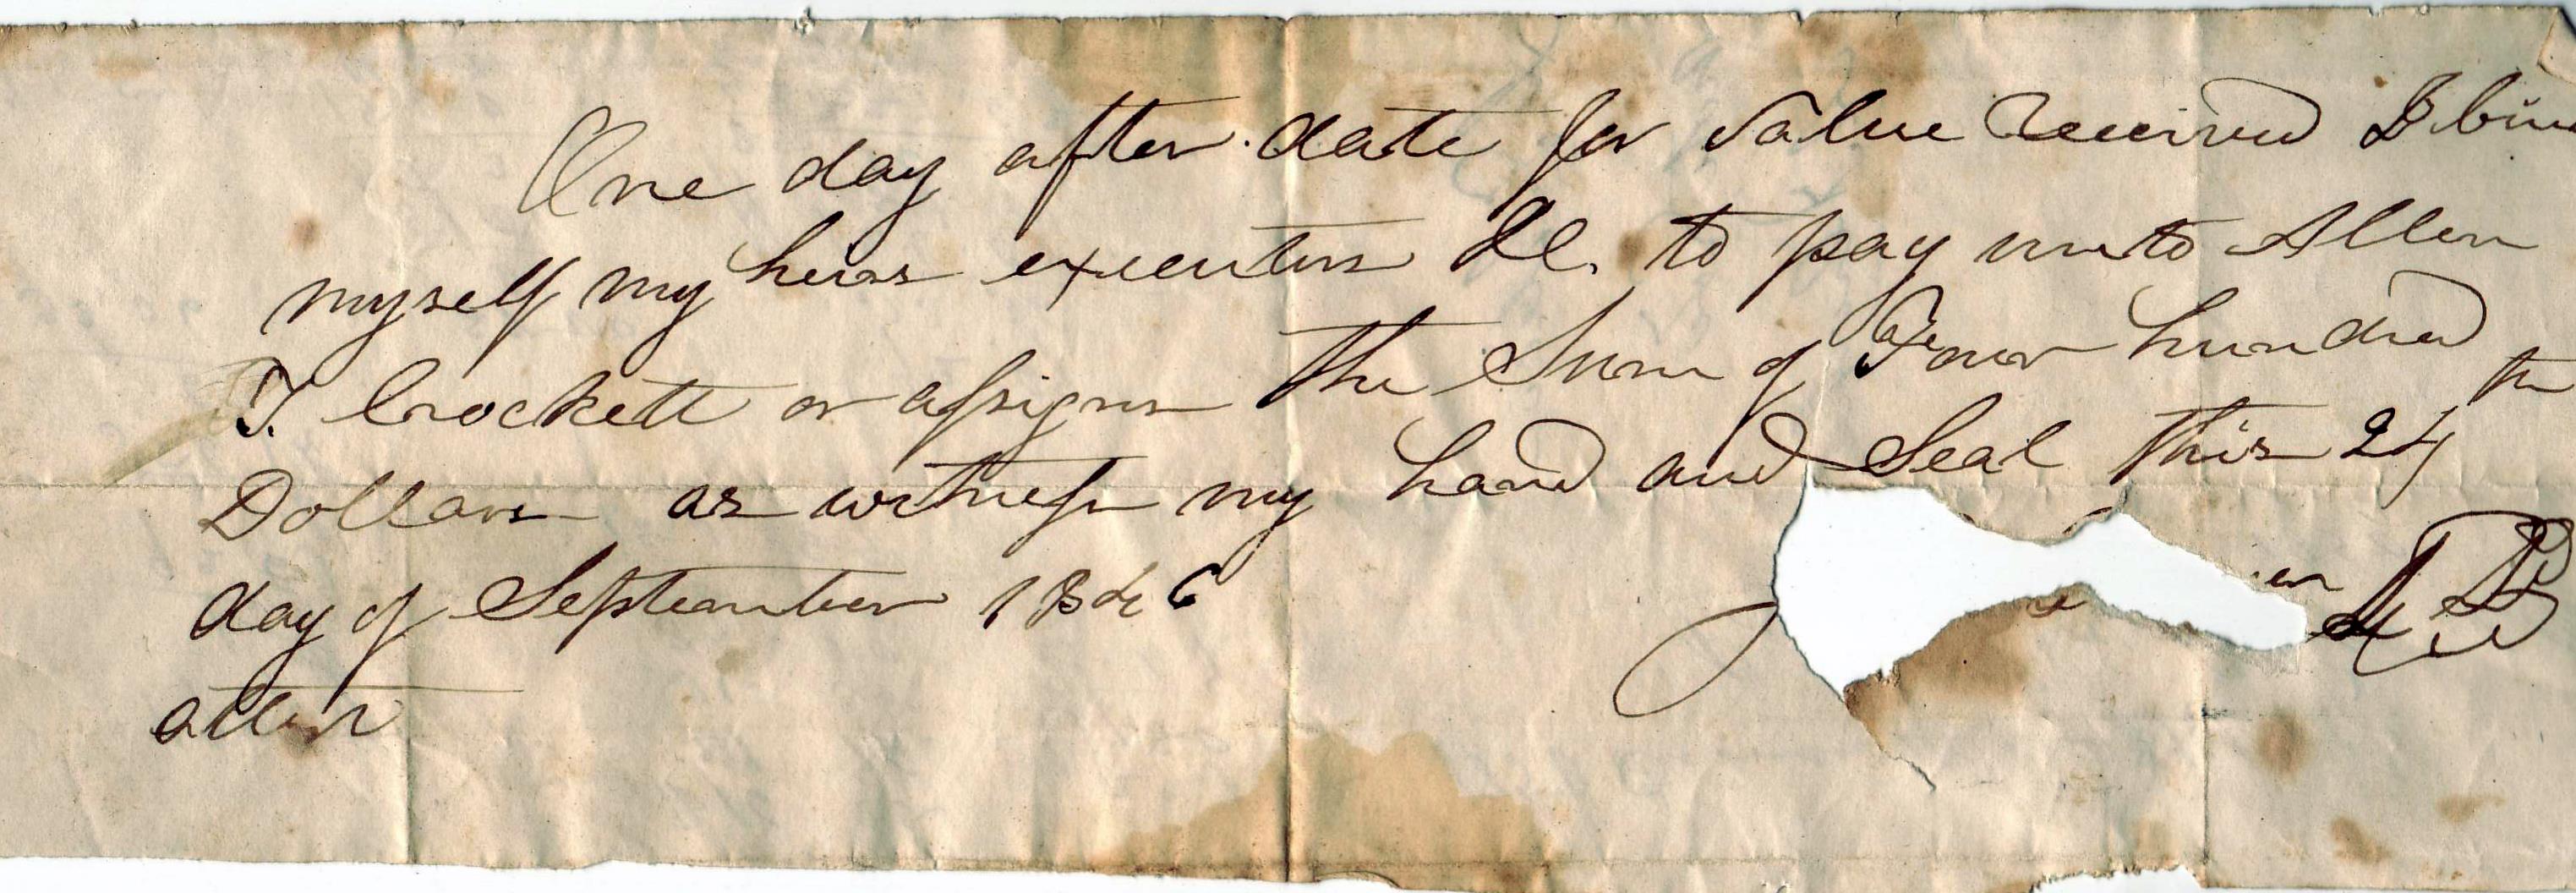 One day after date for value Received I bin
myself my heirs executors &c. to pay unto Allen
T. Crockett or assigns the Sum of Four hundred
Dollars as witness my hand and Seal this 24th
day of September 1846
attest